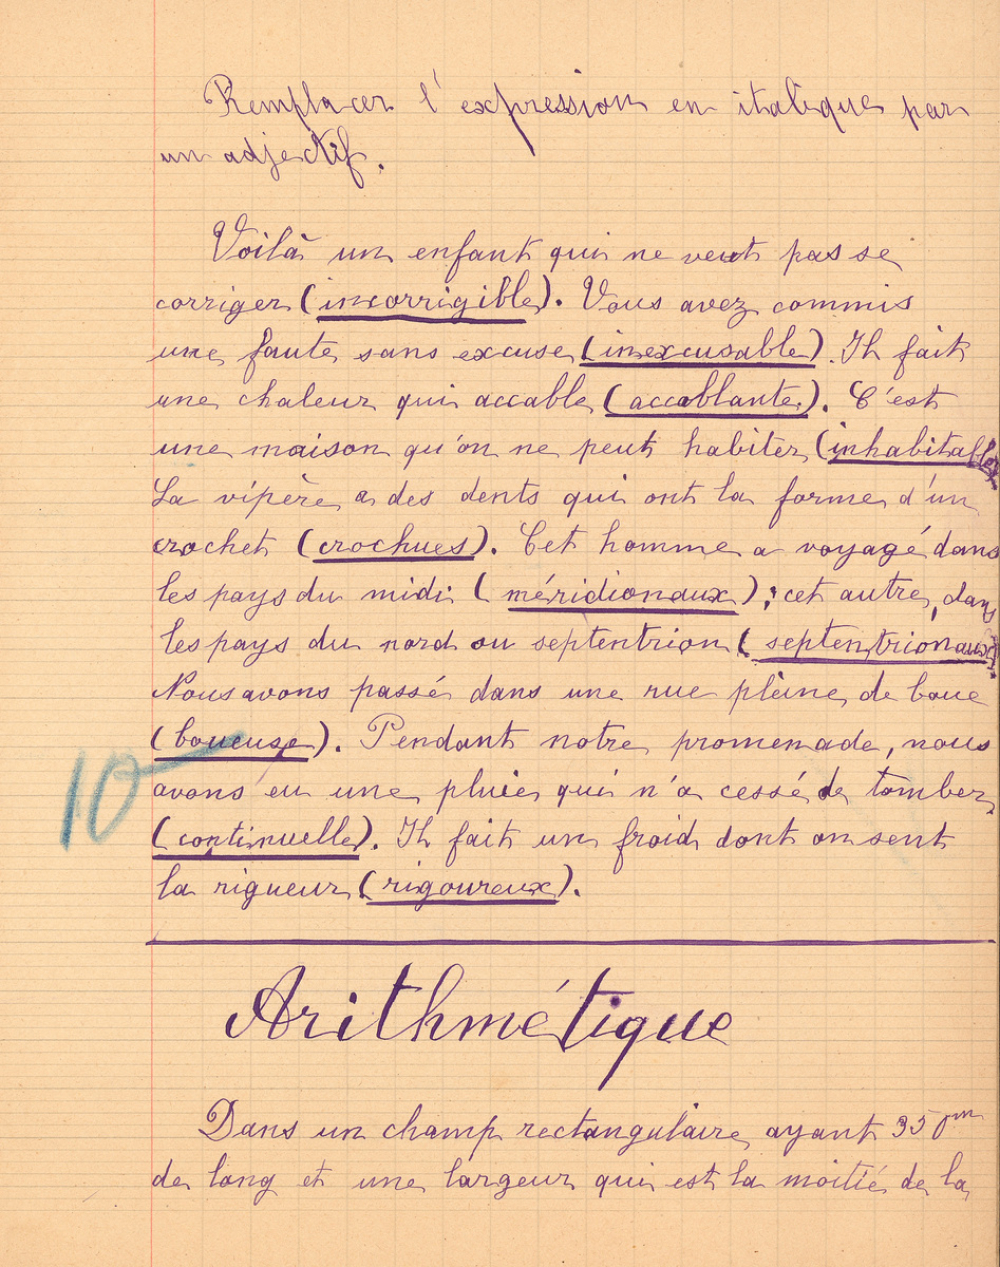 Remplacer l'expression en italique par
un adjectif.
Voilà un enfant qui ne veut pas se
corriger (incorrigible). Vous avez commis
une faute sans excuse (inexcusable). Il fait
une chaleur qui accable (accablante). C'est
une maison qu'on ne peut habiter (inhabitable).
La vipère a des dents qui ont la forme d'un
crochet (crochues). Cet homme a voyagé dans
les pays du midi (méridionaux); cet autre, dans
les pays du nord ou septentrion (septentrionaux).
Nous avons passé dans une rue pleine de boue
(boueuse). Pendant notre promenade, nous
10
avons eu une pluie qui n'a cessé de tomber
(continuelle). Il fait un froid dont on sent
la rigueur (rigoureux).
Arithmétique
Dans un champ rectangulaire ayant 350m
de long et une largeur qui est la moitié de la